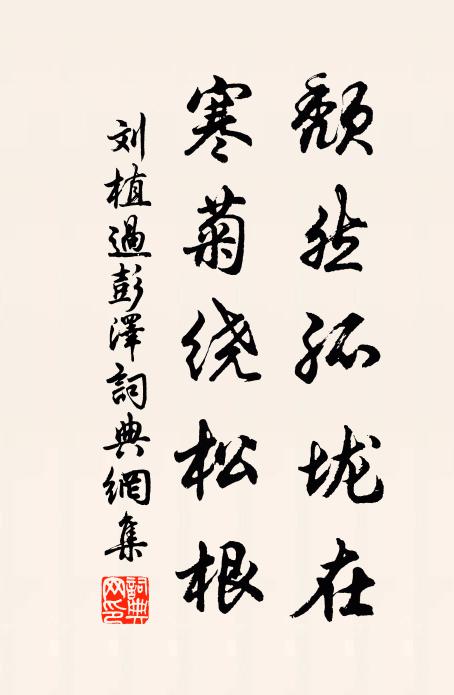 颓然孤垅在
寒菊绕松根
刘植過彭澤詞典網集
詞典網印